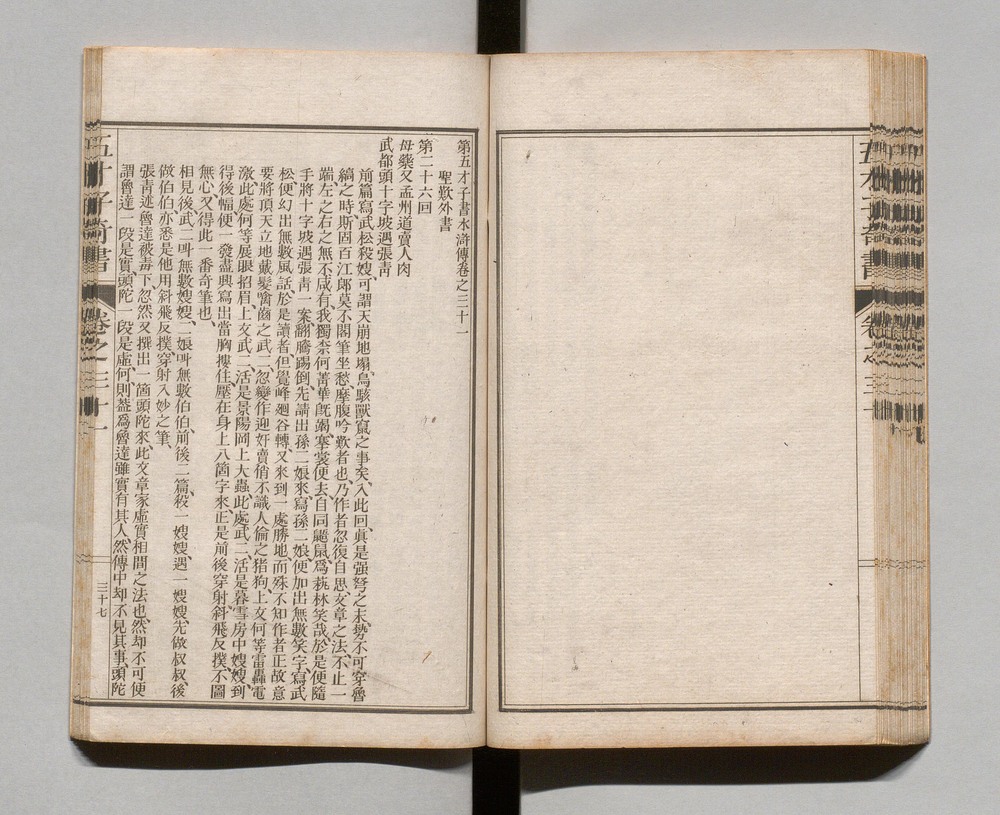 第五才子書水滸傳卷之三十一
聖歎外書
第二十六回
母藥叉孟州道賣人肉
武都頭十字坡遇張靑
前篇寫武松殺嫂、可謂天崩地塌、鳥駭獸竄之事矣、入此回、眞是强弩之末、勢不可穿魯
縞之時、斯固百江郎莫不閣筆坐愁、摩腹吟歎者也、乃作者忽復自思、文章之法、不止一
端、左之右之、無不咸有、我獨柰何菁華旣竭、搴裳便去、自同鼯鼠、爲蓺林笑哉、於是便隨
手將十字坡遇張靑一案、翻騰踢倒、先請出孫二娘來、寫孫二娘便加出無數笑字、寫武
松便幻出無數風話、於是讀者但覺峰廻谷轉、又來到一處勝地、而殊不知作者正故意
要將頂天立地、戴髮噙齒之武二、忽變作迎奸賣俏、不識人倫之猪狗、上文何等雷轟電
激、此處何等展眼招眉、上文武二、活是景陽岡上大蟲、此處武二、活是暮雪房中嫂嫂、到
得後幅、便一發盡興寫出當胸摟住、壓在身上八箇字來、正是前後穿射、斜飛反撲、不圖
無心又得此一番奇筆也、
相見後、武二叫無數嫂嫂、二娘叫無數伯伯、前後二篇、殺一嫂嫂、遇一嫂嫂、先做叔叔、後
做伯伯、亦悉是他用斜飛反撲、穿射入妙之筆、
張靑述魯達被毒下、忽然又撰出一箇頭陀來、此文章家虛實相間之法也、然却不可便
謂魯達一段是實、頭陀一段是虛、何則、葢爲魯達雖實有其人、然傳中却不見其事、頭陀
五才子奇書
卷之三十一
三十七